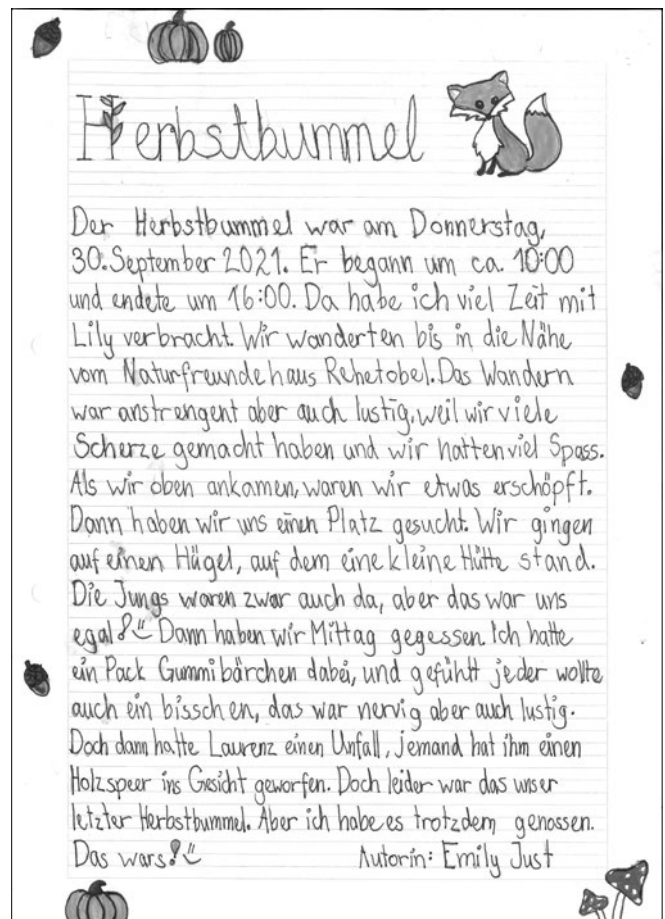 Herbstbummel
Der Herbstbummel war am Donnerstag,
30. September 2021. Er begann um ca. 10:00
und endete um 16:00. Da habe ich viel Zeit mit
Lily verbracht. Wir wanderten bis in die Nähe
vom Naturfreundehaus Rehetobel. Das Wandern
war anstrengent aber auch lustig, weil wir viele
Scherze gemacht haben und wir hatten viel Spass.
Als wir oben ankamen, waren wir etwas erschöpft.
Dann haben wir uns einen Platz gesucht. Wir gingen
auf einen Hügel, auf dem eine kleine Hütte stand.
Die Jungs waren zwar auch da, aber das war uns
egal! Dann haben wir Mittag gegessen. Ich hatte
ein Pack Gummibärchen dabei, und gefühlt jeder wollte
auch ein bisschen, das war nervig aber auch lustig.
Doch dann hatte Laurenz einen Unfall, jemand hat ihm einen
Holzspeer ins Gesicht geworfen. Doch leider war das unser
letzter Herbstbummel. Aber ich habe es trotzdem genossen.
Das wars! Autorin: Emily Just